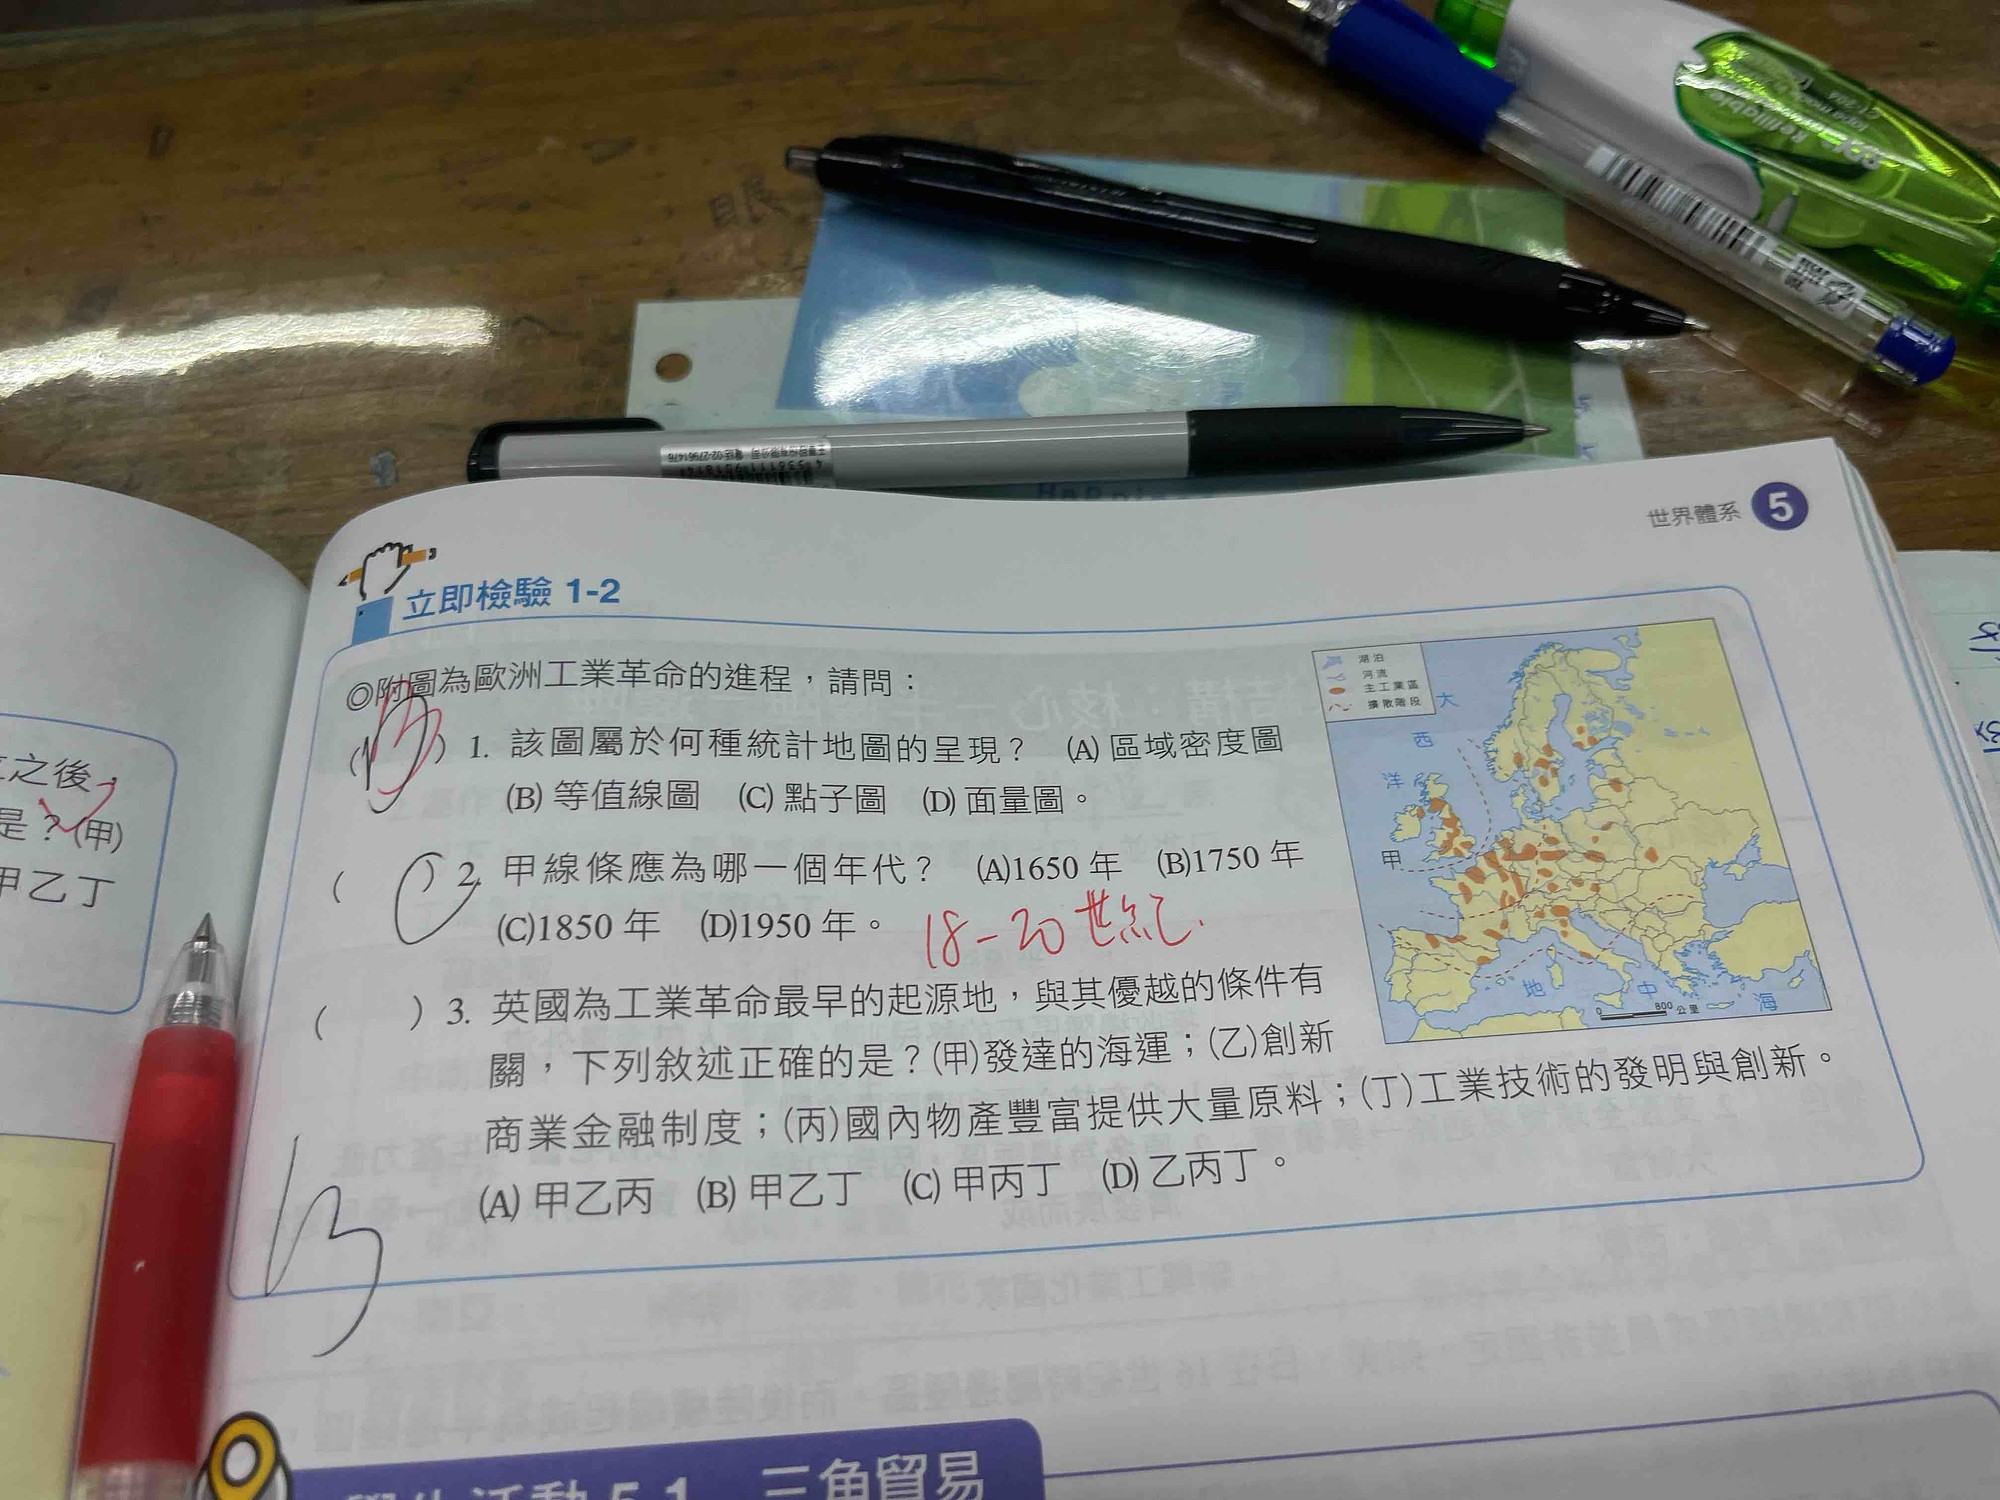 目艮
世界體系 5
立即檢驗 1-2
◎附圖為歐洲工業革命的進程，請問：
(B) 1. 該圖屬於何種統計地圖的呈現？ (A) 區域密度圖
(B) 等值線圖 (C) 點子圖 (D) 面量圖。
( C ) 2. 甲線條應為哪一個年代？ (A)1650 年 (B)1750 年
(C)1850 年 (D)1950 年。 18-20世紀.
( ) 3. 英國為工業革命最早的起源地，與其優越的條件有
關，下列敘述正確的是？(甲)發達的海運；(乙)創新
商業金融制度；(丙)國內物產豐富提供大量原料；(丁)工業技術的發明與創新。
(A) 甲乙丙 (B) 甲乙丁 (C) 甲丙丁 (D) 乙丙丁。
B
湖泊
河流
主工業區
擴散階段
大
西
洋
甲
地 中 海
0 800 公里
之後，
是？(甲)
甲乙丁
5-1 三角貿易